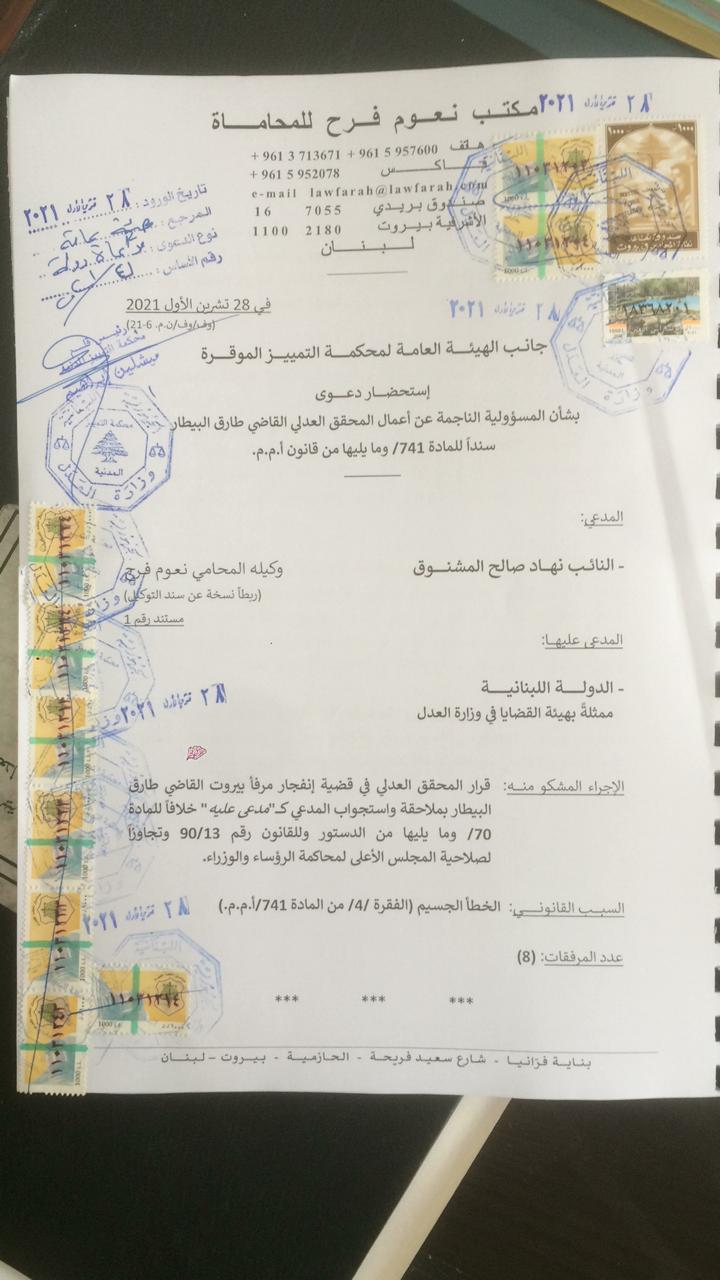 مكتب نعوم فرح للمحاماة
٢٨ ٢٠٢١
هاتف 957600 5 961 + 713671 3 961 +
فاكس 952078 5 961 +
e-mail lawfarah@lawfarah.com
صندوق بريدي 7055 16
الأشرفية بيروت 2180 1100
لبنان
تاريخ الورود: ٢٨ ٢٠٢١
المرجع:
نوع الدعوى:
رقم الأساس:
في 28 تشرين الأول 2021
(وف/وف/ن.م. 6-21)
٢٨ ٢٠٢١
جانب الهيئة العامة لمحكمة التمييز الموقرة
إستحضار دعوى
بشأن المسؤولية الناجمة عن أعمال المحقق العدلي القاضي طارق البيطار
سنداً للمادة 741/ وما يليها من قانون أ.م.م.
محكمة التمييز
المدنية
وزارة العدل
المدعي:
- النائب نهاد صالح المشنوق
وكيله المحامي نعوم فرح
(ربطاً نسخة عن سند التوكيل)
مستند رقم 1
المدعى عليها:
- الدولة اللبنانية
ممثلةً بهيئة القضايا في وزارة العدل
٢٨ ٢٠٢١
الإجراء المشكو منه: قرار المحقق العدلي في قضية إنفجار مرفأ بيروت القاضي طارق
البيطار بملاحقة واستجواب المدعي كـ"مدعى عليه" خلافاً للمادة
70/ وما يليها من الدستور وللقانون رقم 90/13 وتجاوزاً
لصلاحية المجلس الأعلى لمحاكمة الرؤساء والوزراء.
السبب القانوني: الخطأ الجسيم (الفقرة /4/ من المادة 741/أ.م.م.)
٢٨ ٢٠٢١
عدد المرفقات: (8)
*** *** ***
بناية فرّانيا - شارع سعيد فريحة - الحازمية - بيروت – لبنان